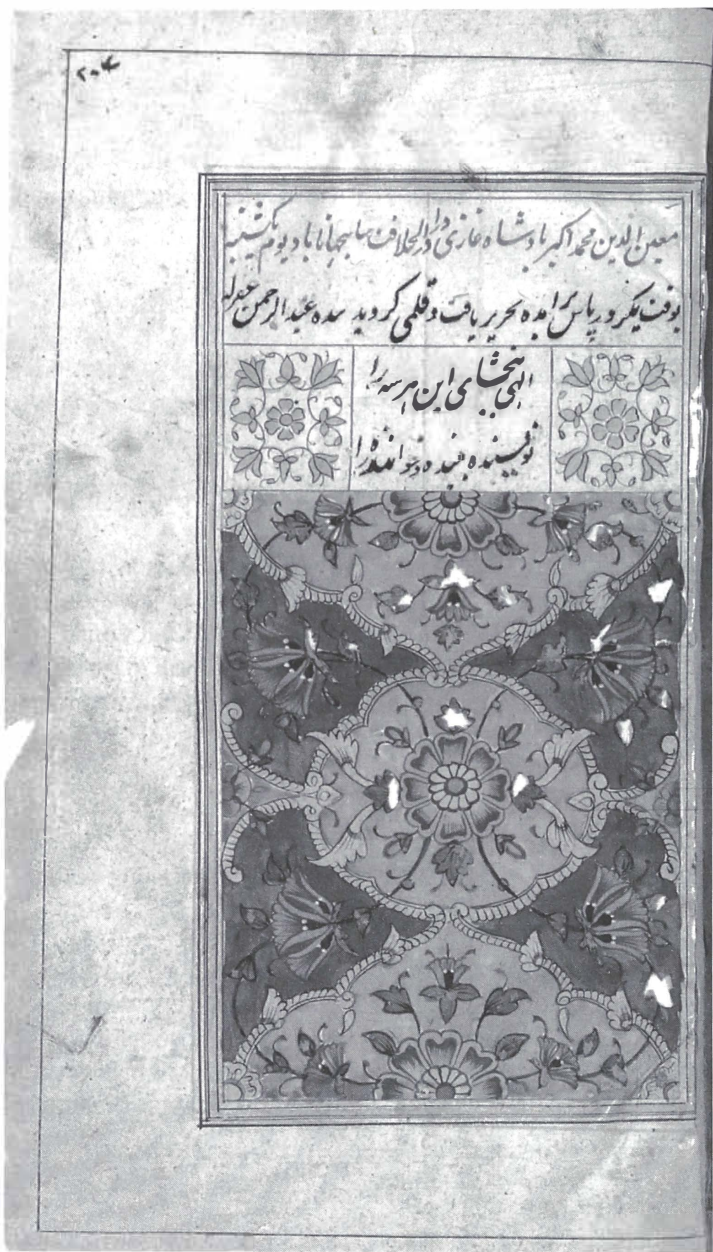 ۲۰۴
معین الدین محمد اکبر بادشاه غازی در دارالخلافت شاهجهاناباد یوم یکشنبه
بوقت پاس برامده تحریر یافت و قلمی کردید عبدالرحمن
الهی ببخشای این هر سه را
نویسنده بیننده و خواننده را